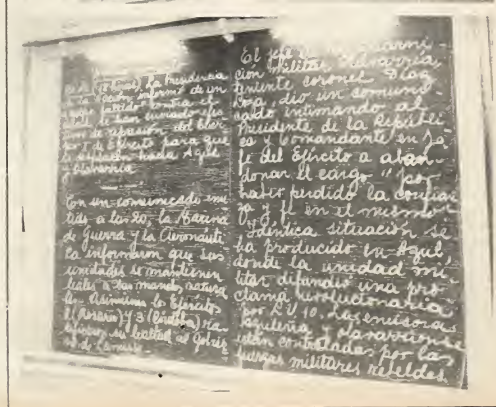 (18 horas) la Presidencia
de la Nación informó de un
contra el
se han enviado efec
tivos de represión del Cuer
po I de Ejército para que
hacia Azul
y Olavarría
Con un comunicado emi
tido a las 20, la Marina
de Guerra y la Aeronáuti
ca informaron que sus
unidades se mantienen
leales a sus mandos natura
les. Asimismo los Ejércitos
2 (Rosario) y 3 (Córdoba) rea
firman su lealtad al Gobier
no de Lanusse
El jefe de la guarni-
ción militar Olavarría,
teniente coronel Díaz
Loza, dio un comuni-
cado intimando al
Presidente de la Repúbli-
ca y Comandante en Je-
fe del Ejército a aban-
donar el cargo "por
haber perdido la confian
za y fe en el mismo"
Idéntica situación se
ha producido en Azul,
donde la unidad mi-
litar difundió una pro-
clama revolucionaria
por L.U 10. Las emisoras
azuleña y olavarriense
están controladas por las
fuerzas militares rebeldes.